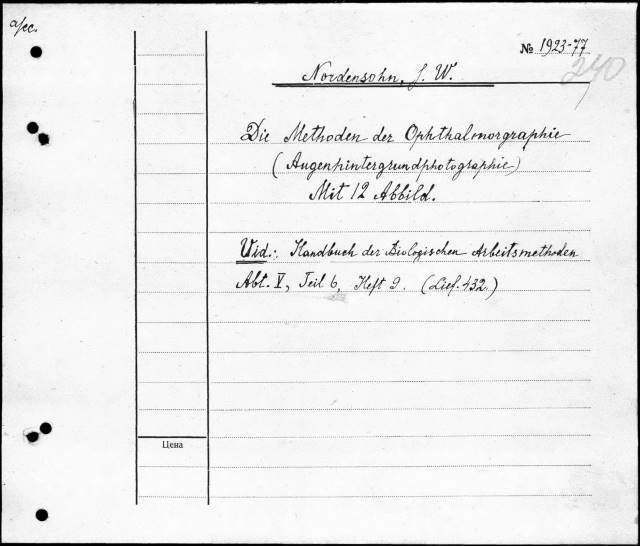 a/ec.
№ 1923-77
240
Nordensohn, J. W.
Die Methoden der Ophthalmorgraphie
(Augenhintergrundphotographie)
Mit 12 Abbild.
Vid.: Handbuch der Biologischen Arbeitsmethoden
Abt. V, Teil 6, Heft 9. (Lief. 432.)
Цена